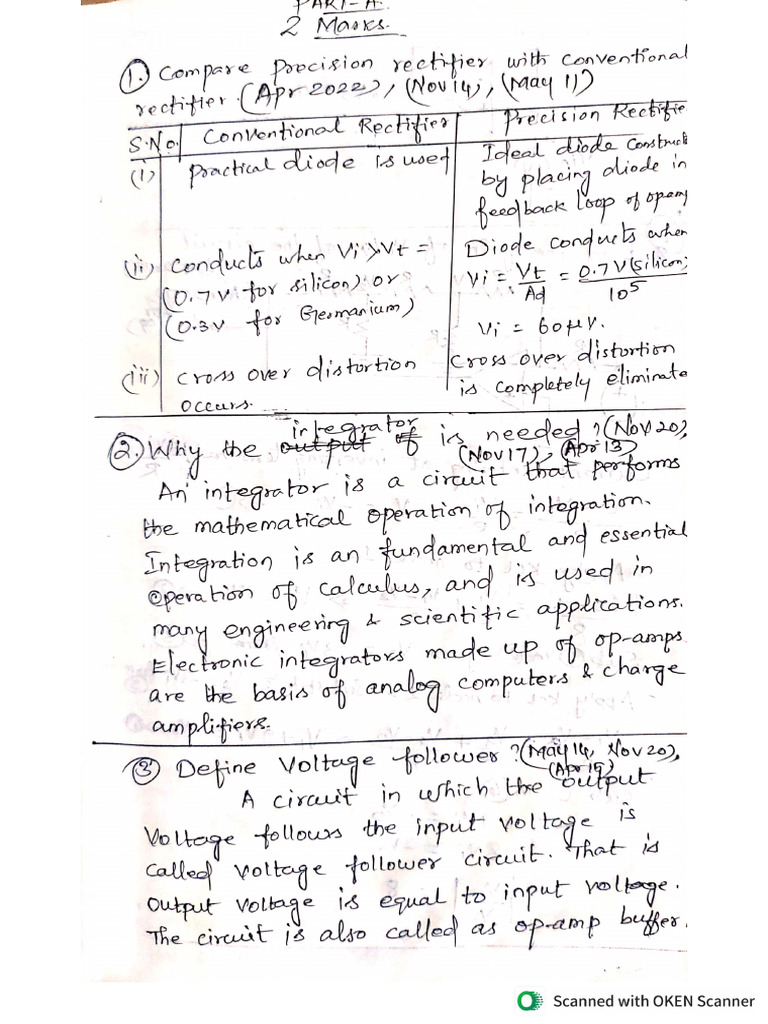 PART-A.
2 Marks.
1. Compare Precision rectifier with conventional
rectifier. (Apr 2022), (Nov 14), (May 11)
S.No. Conventional Rectifier Precision Rectifie
(i) Practical diode is used Ideal diode construct
by placing diode in
feedback loop of opamp
(ii) Conducts when Vi > Vt = Diode conducts when
(0.7V for silicon) or Vi = Vt/Ad = 0.7V(silicon)/10^5
(0.3V for Germanium) Vi = 60μV.
(iii) Cross over distortion Cross over distortion
occurs. is completely eliminate
2. Why the integrator is needed? (Nov 20),
(Nov 17), (Apr 13)
An integrator is a circuit that performs
the mathematical operation of integration.
Integration is an fundamental and essential
operation of calculus, and is used in
many engineering & scientific applications.
Electronic integrators made up of op-amps
are the basis of analog computers & charge
amplifiers.
3 Define Voltage follower? (May 14, Nov 20),
(Apr 15)
A circuit in which the output
Voltage follows the input voltage is
called voltage follower circuit. That is
output voltage is equal to input voltage.
The circuit is also called as op-amp buffer.
Scanned with OKEN Scanner